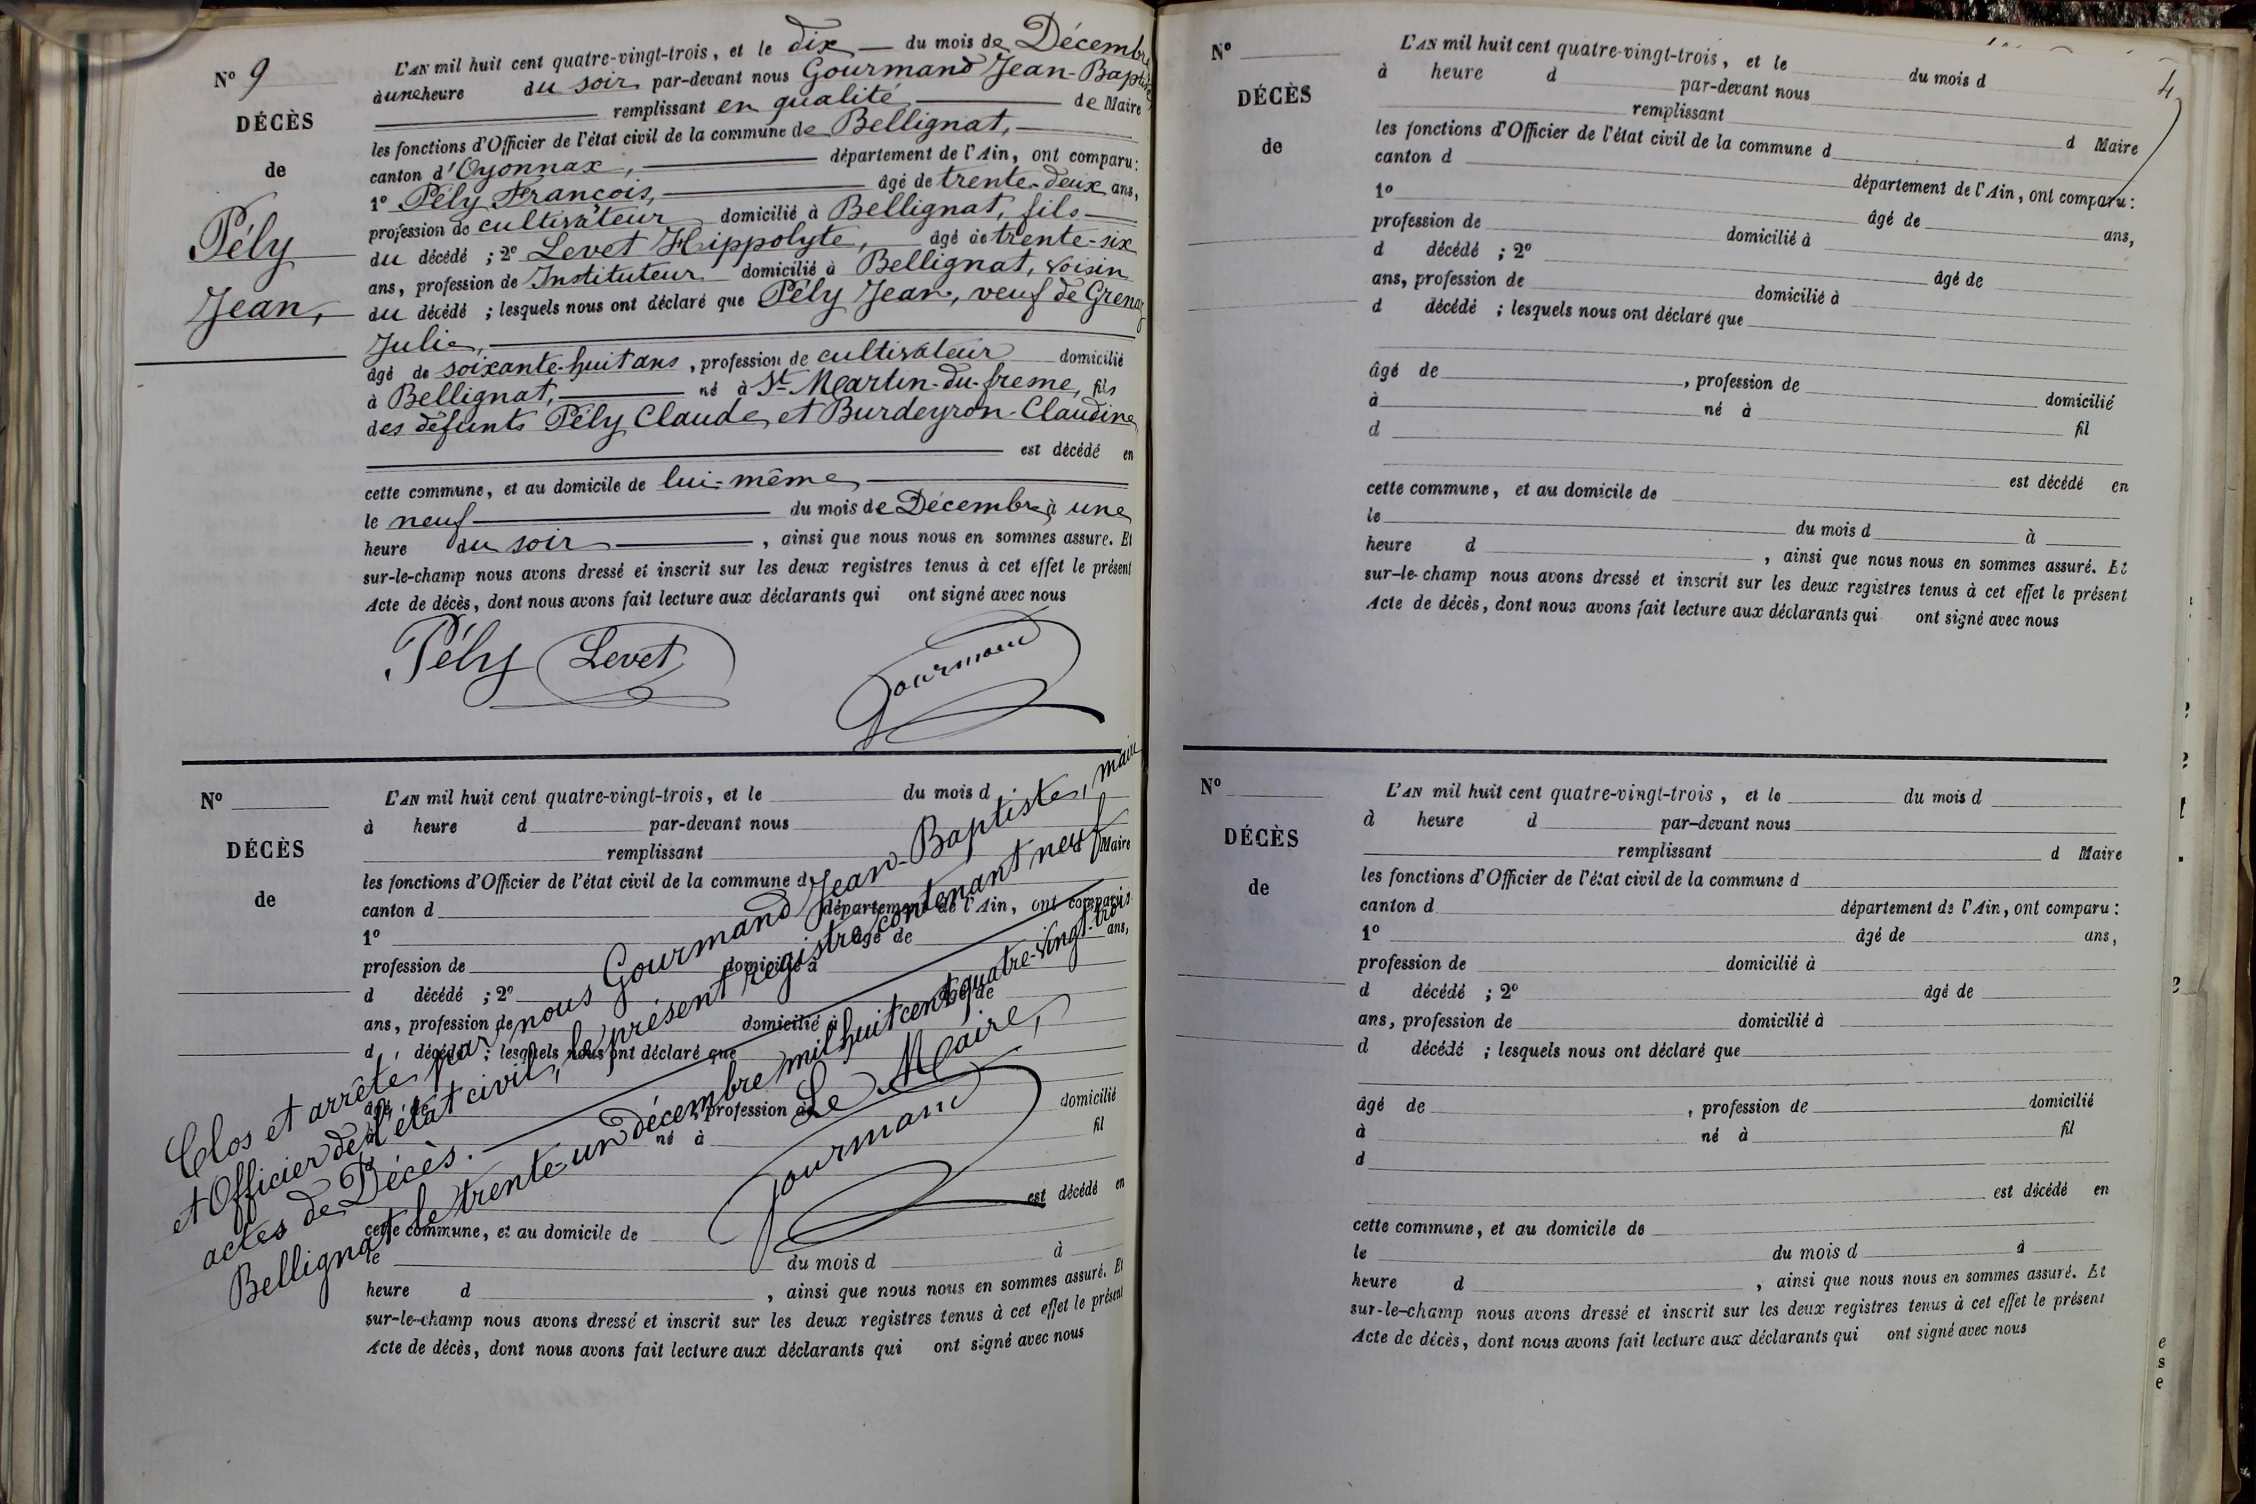 N° 9
DÉCÈS
de
Pély
Jean,
L'AN mil huit cent quatre-vingt-trois, et le dix du mois de Décembre
à une heure du soir par-devant nous Gourmand Jean-Baptiste,
remplissant en qualité de Maire
les fonctions d'Officier de l'état civil de la commune de Bellignat,
canton d'Oyonnax, département de l'Ain, ont comparu:
1° Pély François, âgé de trente-deux ans,
profession de cultivateur domicilié à Bellignat, fils
du décédé ; 2° Levet Hippolyte, âgé de trente-six
ans, profession de Instituteur domicilié à Bellignat, voisin
du décédé ; lesquels nous ont déclaré que Pély Jean, veuf de Grenaz
Julie,
âgé de soixante-huit ans, profession de cultivateur domicilié
à Bellignat, né à St-Martin-du-fresne, fils
des défunts Pély Claude et Burdeyron Claudine
est décédé en
cette commune, et au domicile de lui-même
le neuf du mois de Décembre à une
heure du soir, ainsi que nous nous en sommes assuré. Et
sur-le-champ nous avons dressé et inscrit sur les deux registres tenus à cet effet le présent
Acte de décès, dont nous avons fait lecture aux déclarants qui ont signé avec nous
Pély Levet Gourmand
N°
DÉCÈS
de
L'AN mil huit cent quatre-vingt-trois, et le du mois d
à heure d par-devant nous
remplissant Maire
les fonctions d'Officier de l'état civil de la commune d
canton d département de l'Ain, ont comparu:
1° âgé de ans,
profession de domicilié à
d décédé ; 2° âgé de
ans, profession de domicilié à
d décédé ; lesquels nous ont déclaré que
âgé de , profession de domicilié
à né à fil
est décédé en
cette commune, et au domicile de
le du mois d à
heure d , ainsi que nous nous en sommes assuré. Et
sur-le-champ nous avons dressé et inscrit sur les deux registres tenus à cet effet le présent
Acte de décès, dont nous avons fait lecture aux déclarants qui ont signé avec nous
Clos et arrêté par nous Gourmand Jean-Baptiste, maire
et Officier de l'état civil, le présent registre contenant neuf
actes de Décès.
Bellignat le trente-un décembre mil huit cent quatre-vingt-trois
Le Maire,
Gourmand
4
N°
DÉCÈS
de
L'AN mil huit cent quatre-vingt-trois, et le du mois d
à heure d par-devant nous
remplissant d Maire
les fonctions d'Officier de l'état civil de la commune d
canton d département de l'Ain, ont comparu:
1° âgé de ans,
profession de domicilié à
d décédé ; 2° âgé de
ans, profession de domicilié à
d décédé ; lesquels nous ont déclaré que
âgé de , profession de domicilié
à né à fil
d
est décédé en
cette commune, et au domicile de
le du mois d à
heure d , ainsi que nous nous en sommes assuré. Et
sur-le-champ nous avons dressé et inscrit sur les deux registres tenus à cet effet le présent
Acte de décès, dont nous avons fait lecture aux déclarants qui ont signé avec nous
N°
DÉCÈS
de
L'AN mil huit cent quatre-vingt-trois, et le du mois d
à heure d par-devant nous
remplissant d Maire
les fonctions d'Officier de l'état civil de la commune d
canton d département de l'Ain, ont comparu:
1° âgé de ans,
profession de domicilié à
d décédé ; 2° âgé de
ans, profession de domicilié à
d décédé ; lesquels nous ont déclaré que
âgé de , profession de domicilié
à né à fil
d
est décédé en
cette commune, et au domicile de
le du mois d à
heure d , ainsi que nous nous en sommes assuré. Et
sur-le-champ nous avons dressé et inscrit sur les deux registres tenus à cet effet le présent
Acte de décès, dont nous avons fait lecture aux déclarants qui ont signé avec nous